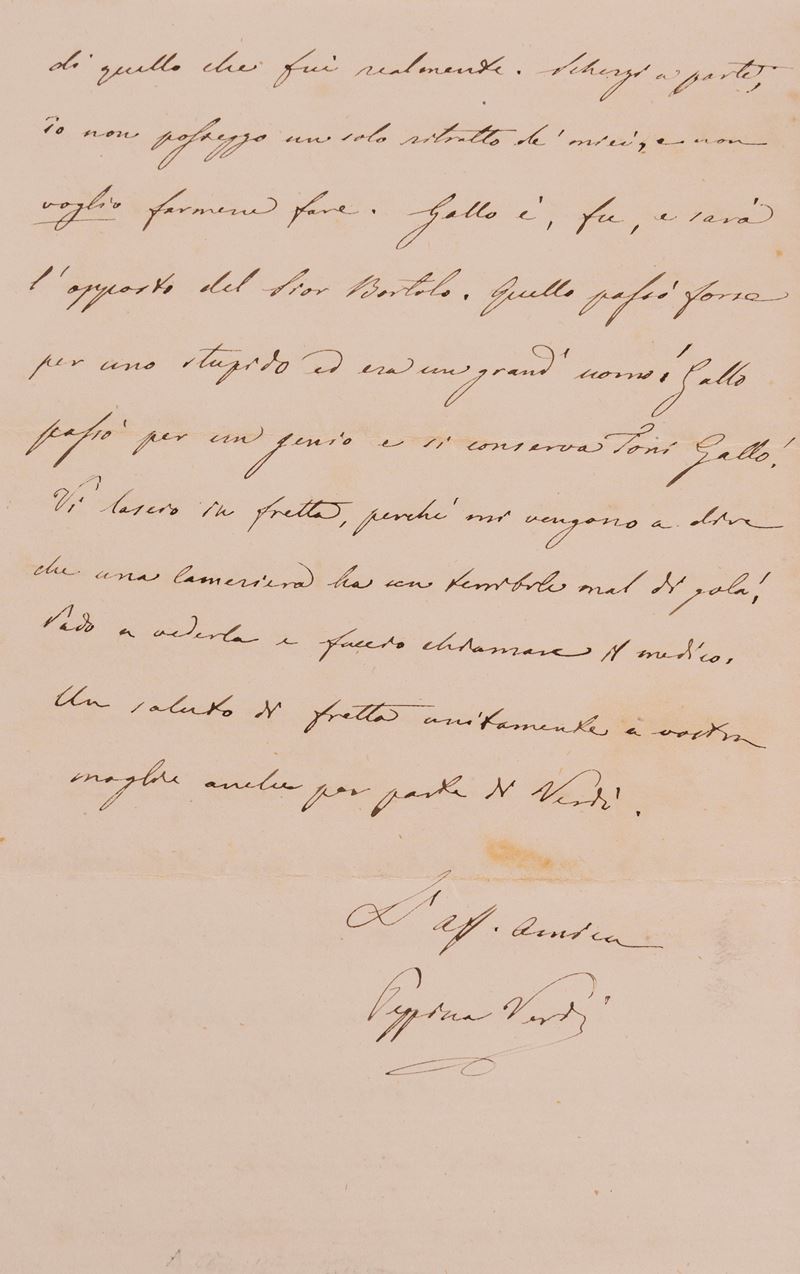 di quello che fui realmente. Scherzi a parte,
io non posseggo un solo ritratto de' miei, e non
voglio farmene fare. Gallo è, fu, e sarà
l'opposto del Sior Bortolo. Quello passò forse
per uno stupido ed era un grand' uomo! Gallo
passò per un genio e si conserva Toni Gallo!
Vi lascio in fretta, perché mi vengono a dire
che una cameriera ha un terribile mal di gola!
Vado a vederla e faccio chiamare il medico.
Un saluto di fretta unitamente a vostra
moglie anche per parte di Verdi.
L'aff. amica
Peppina Verdi